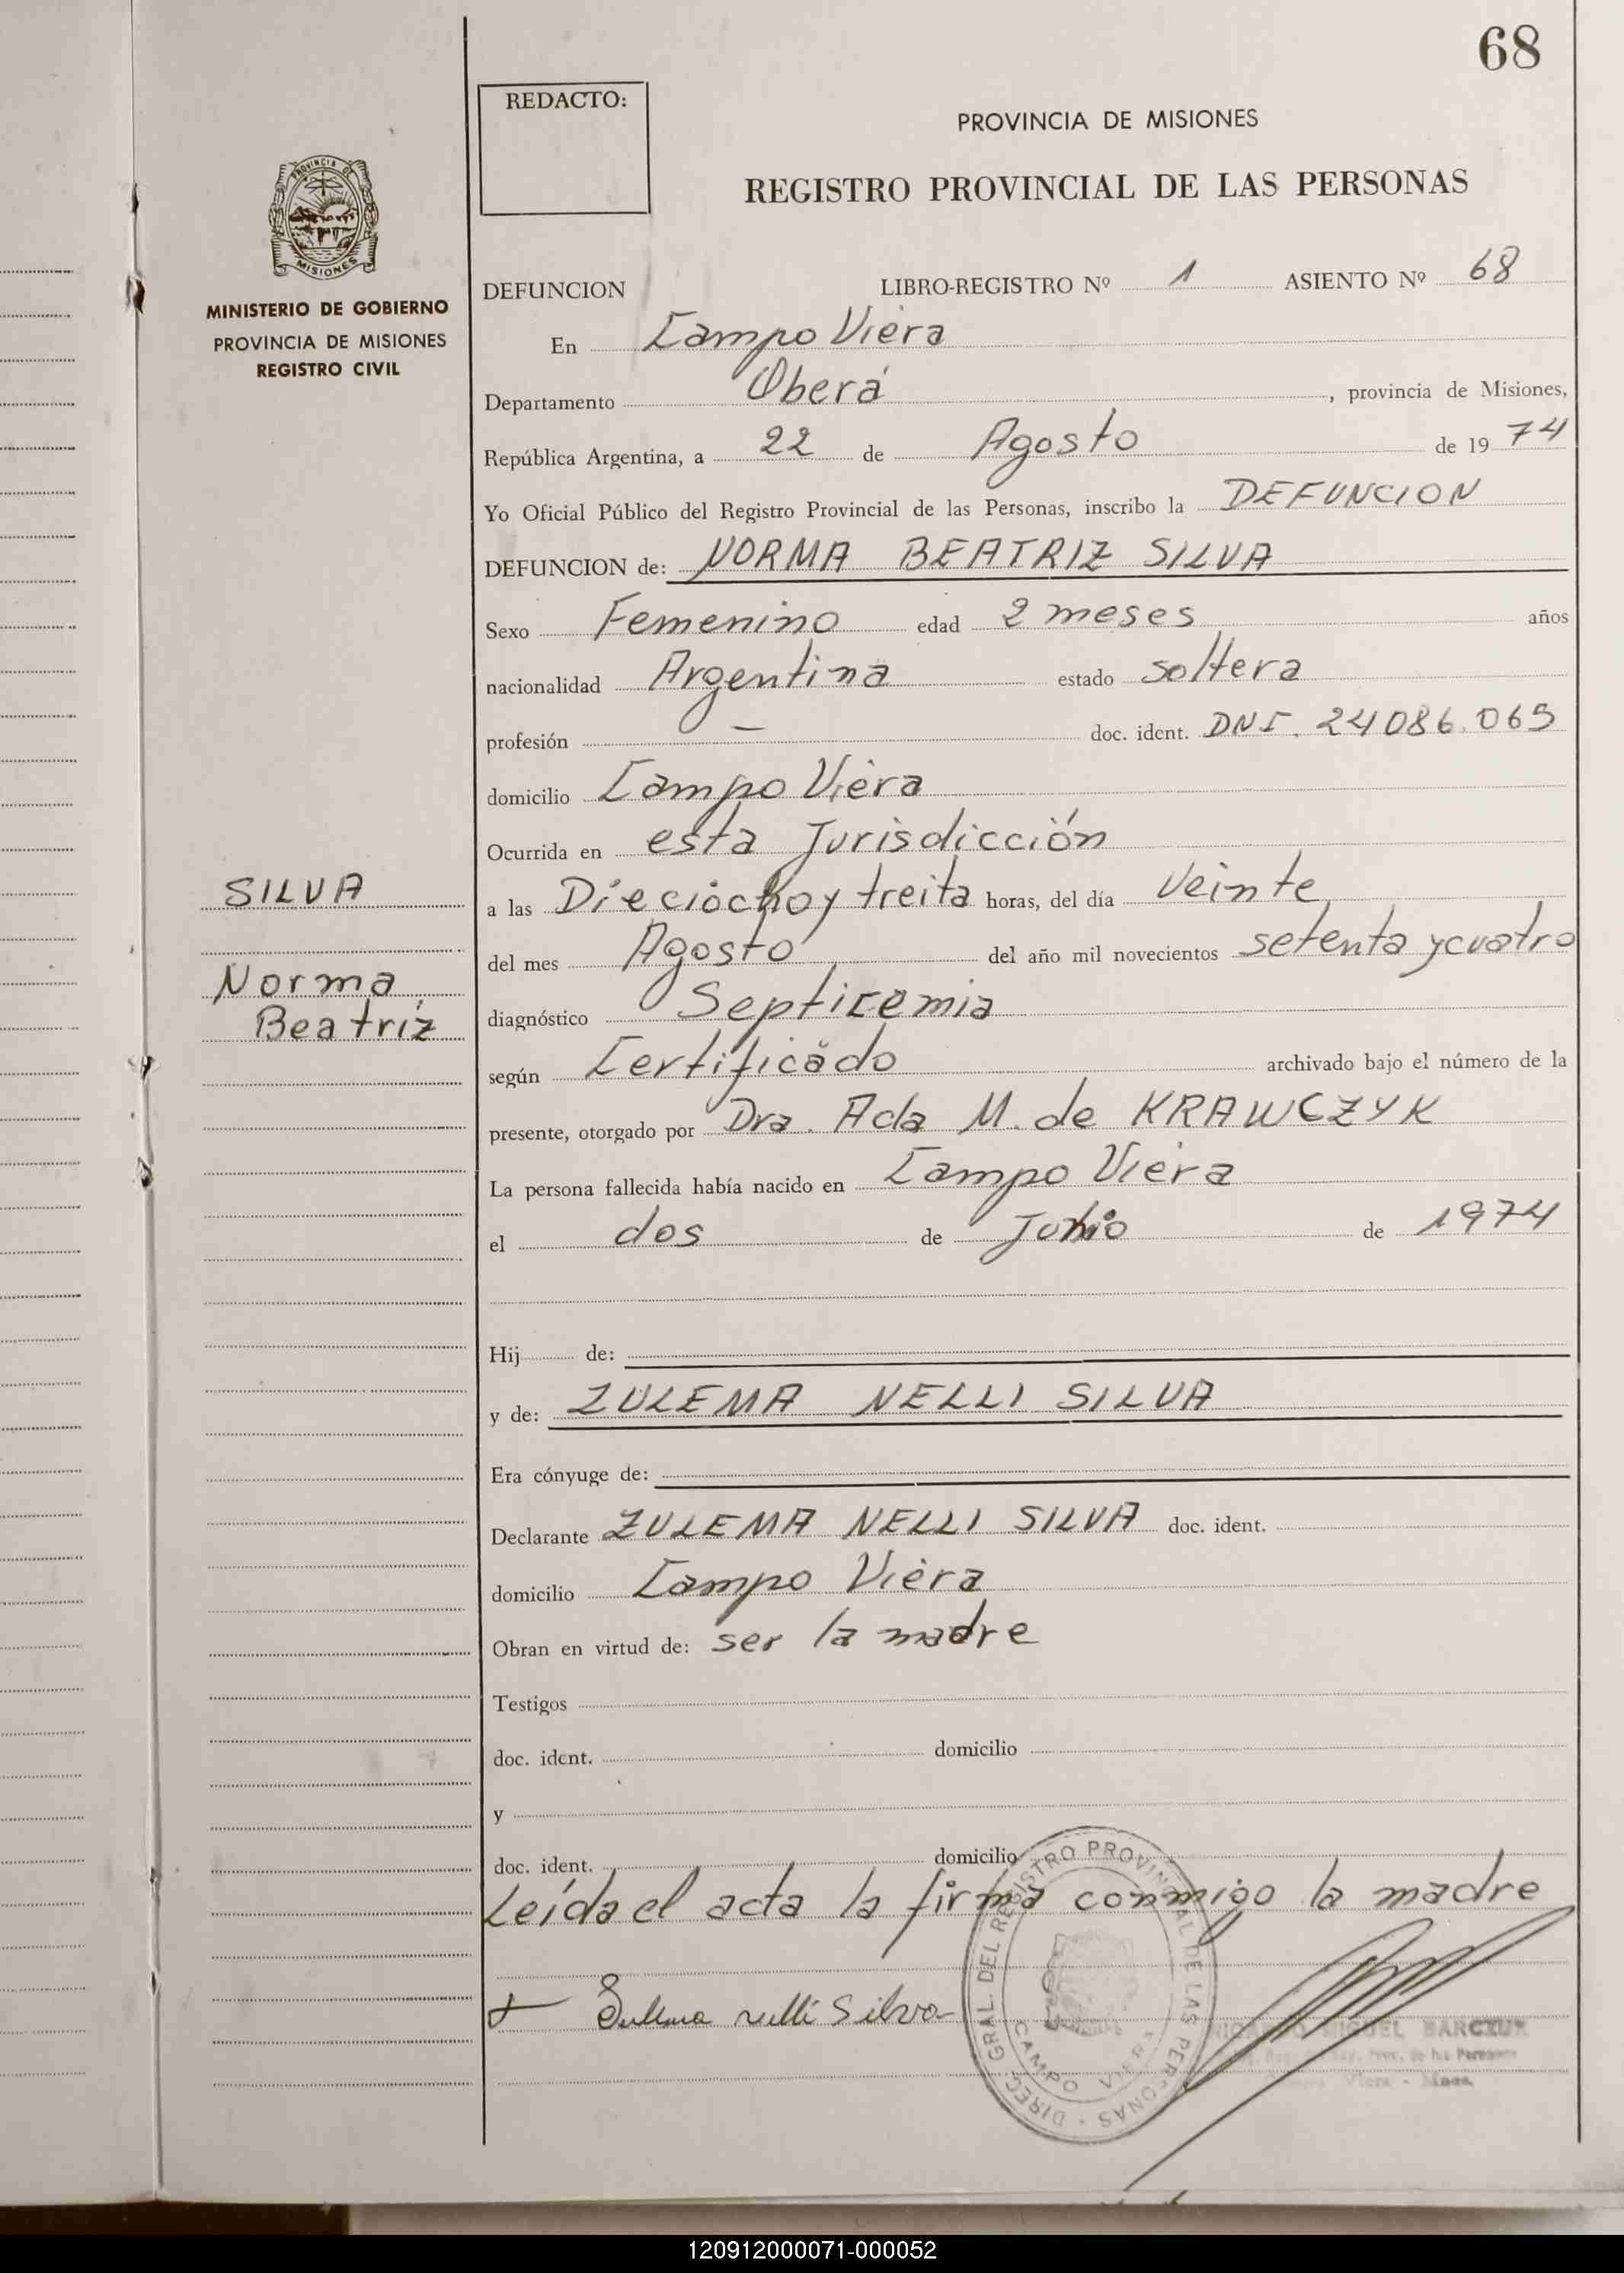 68
REDACTO:
PROVINCIA DE MISIONES
REGISTRO PROVINCIAL DE LAS PERSONAS
PROVINCIA DE
MISIONES
MINISTERIO DE GOBIERNO
PROVINCIA DE MISIONES
REGISTRO CIVIL
DEFUNCION LIBRO-REGISTRO Nº 1 ASIENTO Nº 68
En Campo Viera
Departamento Oberá, provincia de Misiones,
República Argentina, a 22 de Agosto de 1974
Yo Oficial Público del Registro Provincial de las Personas, inscribo la DEFUNCION
DEFUNCION de: NORMA BEATRIZ SILVA
Sexo Femenino edad 2 meses años
nacionalidad Argentina estado soltera
profesión — doc. ident. DNI. 24086.065
domicilio Campo Viera
Ocurrida en esta Jurisdicción
SILVA
a las Dieciocho y treita horas, del día Veinte
del mes Agosto del año mil novecientos setenta y cuatro
Norma
Beatriz
diagnóstico Septicemia
según Certificado archivado bajo el número de la
presente, otorgado por Dra. Ada M. de KRAWCZYK
La persona fallecida había nacido en Campo Viera
el dos de de 1974
Hij de:
y de: ZULEMA NELLI SILVA
Era cónyuge de:
Declarante ZULEMA NELLI SILVA doc. ident.
domicilio Campo Viera
Obran en virtud de: ser la madre
Testigos
doc. ident. domicilio
y
doc. ident. domicilio
Leída el acta la firma conmigo la madre
Sulema nelli Silva
DIREC. GRAL. DEL REGISTRO PROVINCIAL DE LAS PERSONAS
CAMPO VIERA
MIGUEL
120912000071-000052